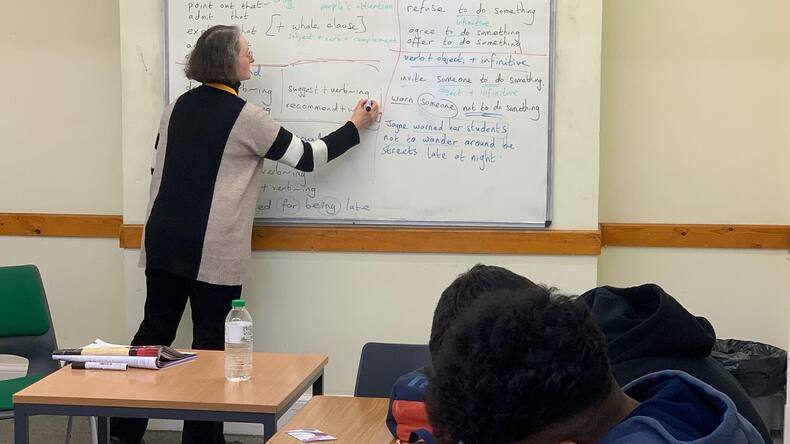 point out that
people's attention
admit that
[+ whole clause]
subject + verb + complement
refuse to do something
infinitive
agree to do something
offer to do something
verb + object, + infinitive
invite someone to do something
object + infinitive
warn someone not to do something
Jayne warned her students
not to wander around the
streets late at night.
suggest + verb~ing
recommend +
verb~ing
+ verb~ing
for being late